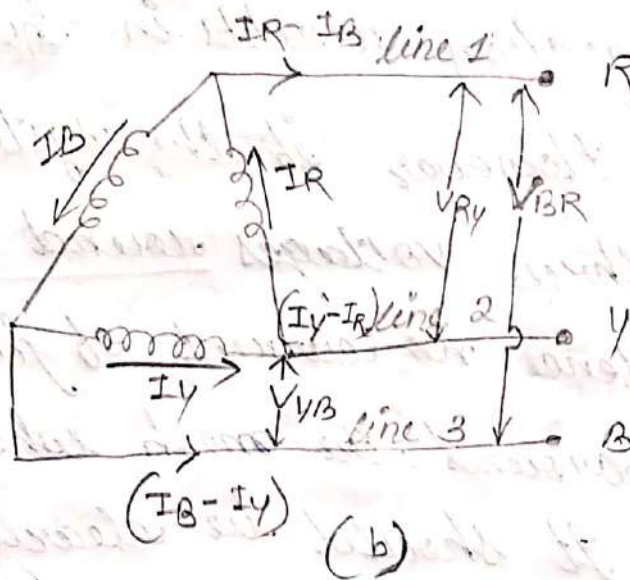 I_R - I_B line 1 R
I_B I_R V_Ry V_BR
(I_y - I_R) line 2 y
I_y V_yB line 3 B
(I_B - I_y)
(b)